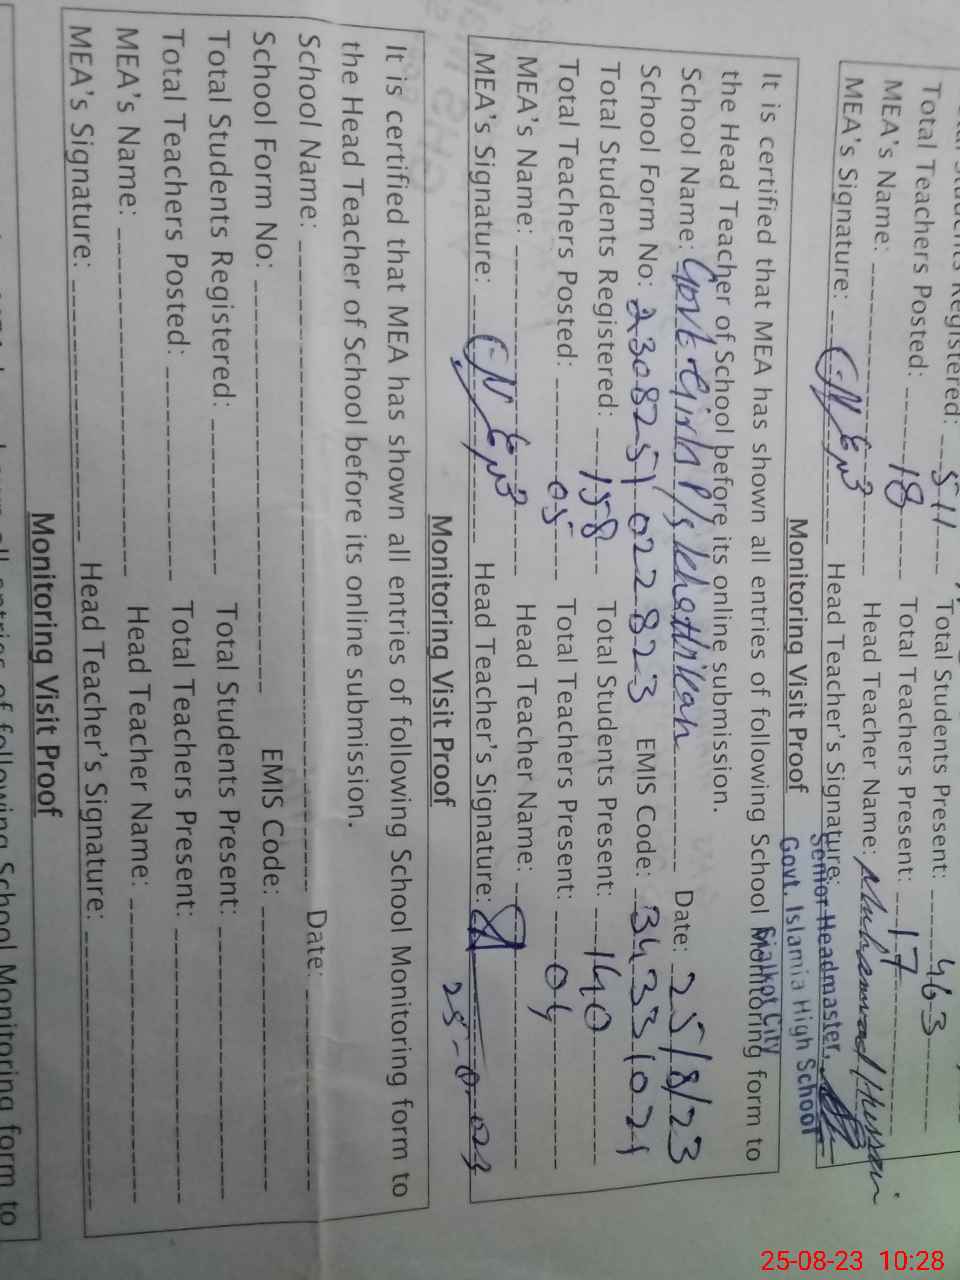 Total Students Registered: 511 Total Students Present: 463
Total Teachers Posted: 18 Total Teachers Present: 17
MEA's Name: Head Teacher Name: Muhammad Hussain
MEA's Signature: Head Teacher's Signature:
Senior Headmaster,
Govt. Islamia High School
Sialkot City
Monitoring Visit Proof
It is certified that MEA has shown all entries of following School Monitoring form to
the Head Teacher of School before its online submission.
School Name: Govt. Girls P/S Date: 25/8/23
School Form No: 2308251022823 EMIS Code: 34331021
Total Students Registered: 158 Total Students Present: 140
Total Teachers Posted: 05 Total Teachers Present: 04
MEA's Name: Head Teacher Name:
MEA's Signature: Head Teacher's Signature:
Monitoring Visit Proof
It is certified that MEA has shown all entries of following School Monitoring form to
the Head Teacher of School before its online submission.
School Name: Date:
School Form No: EMIS Code:
Total Students Registered: Total Students Present:
Total Teachers Posted: Total Teachers Present:
MEA's Name: Head Teacher Name:
MEA's Signature: Head Teacher's Signature:
Monitoring Visit Proof
all entries of following School Monitoring form to
25-08-23 10:28